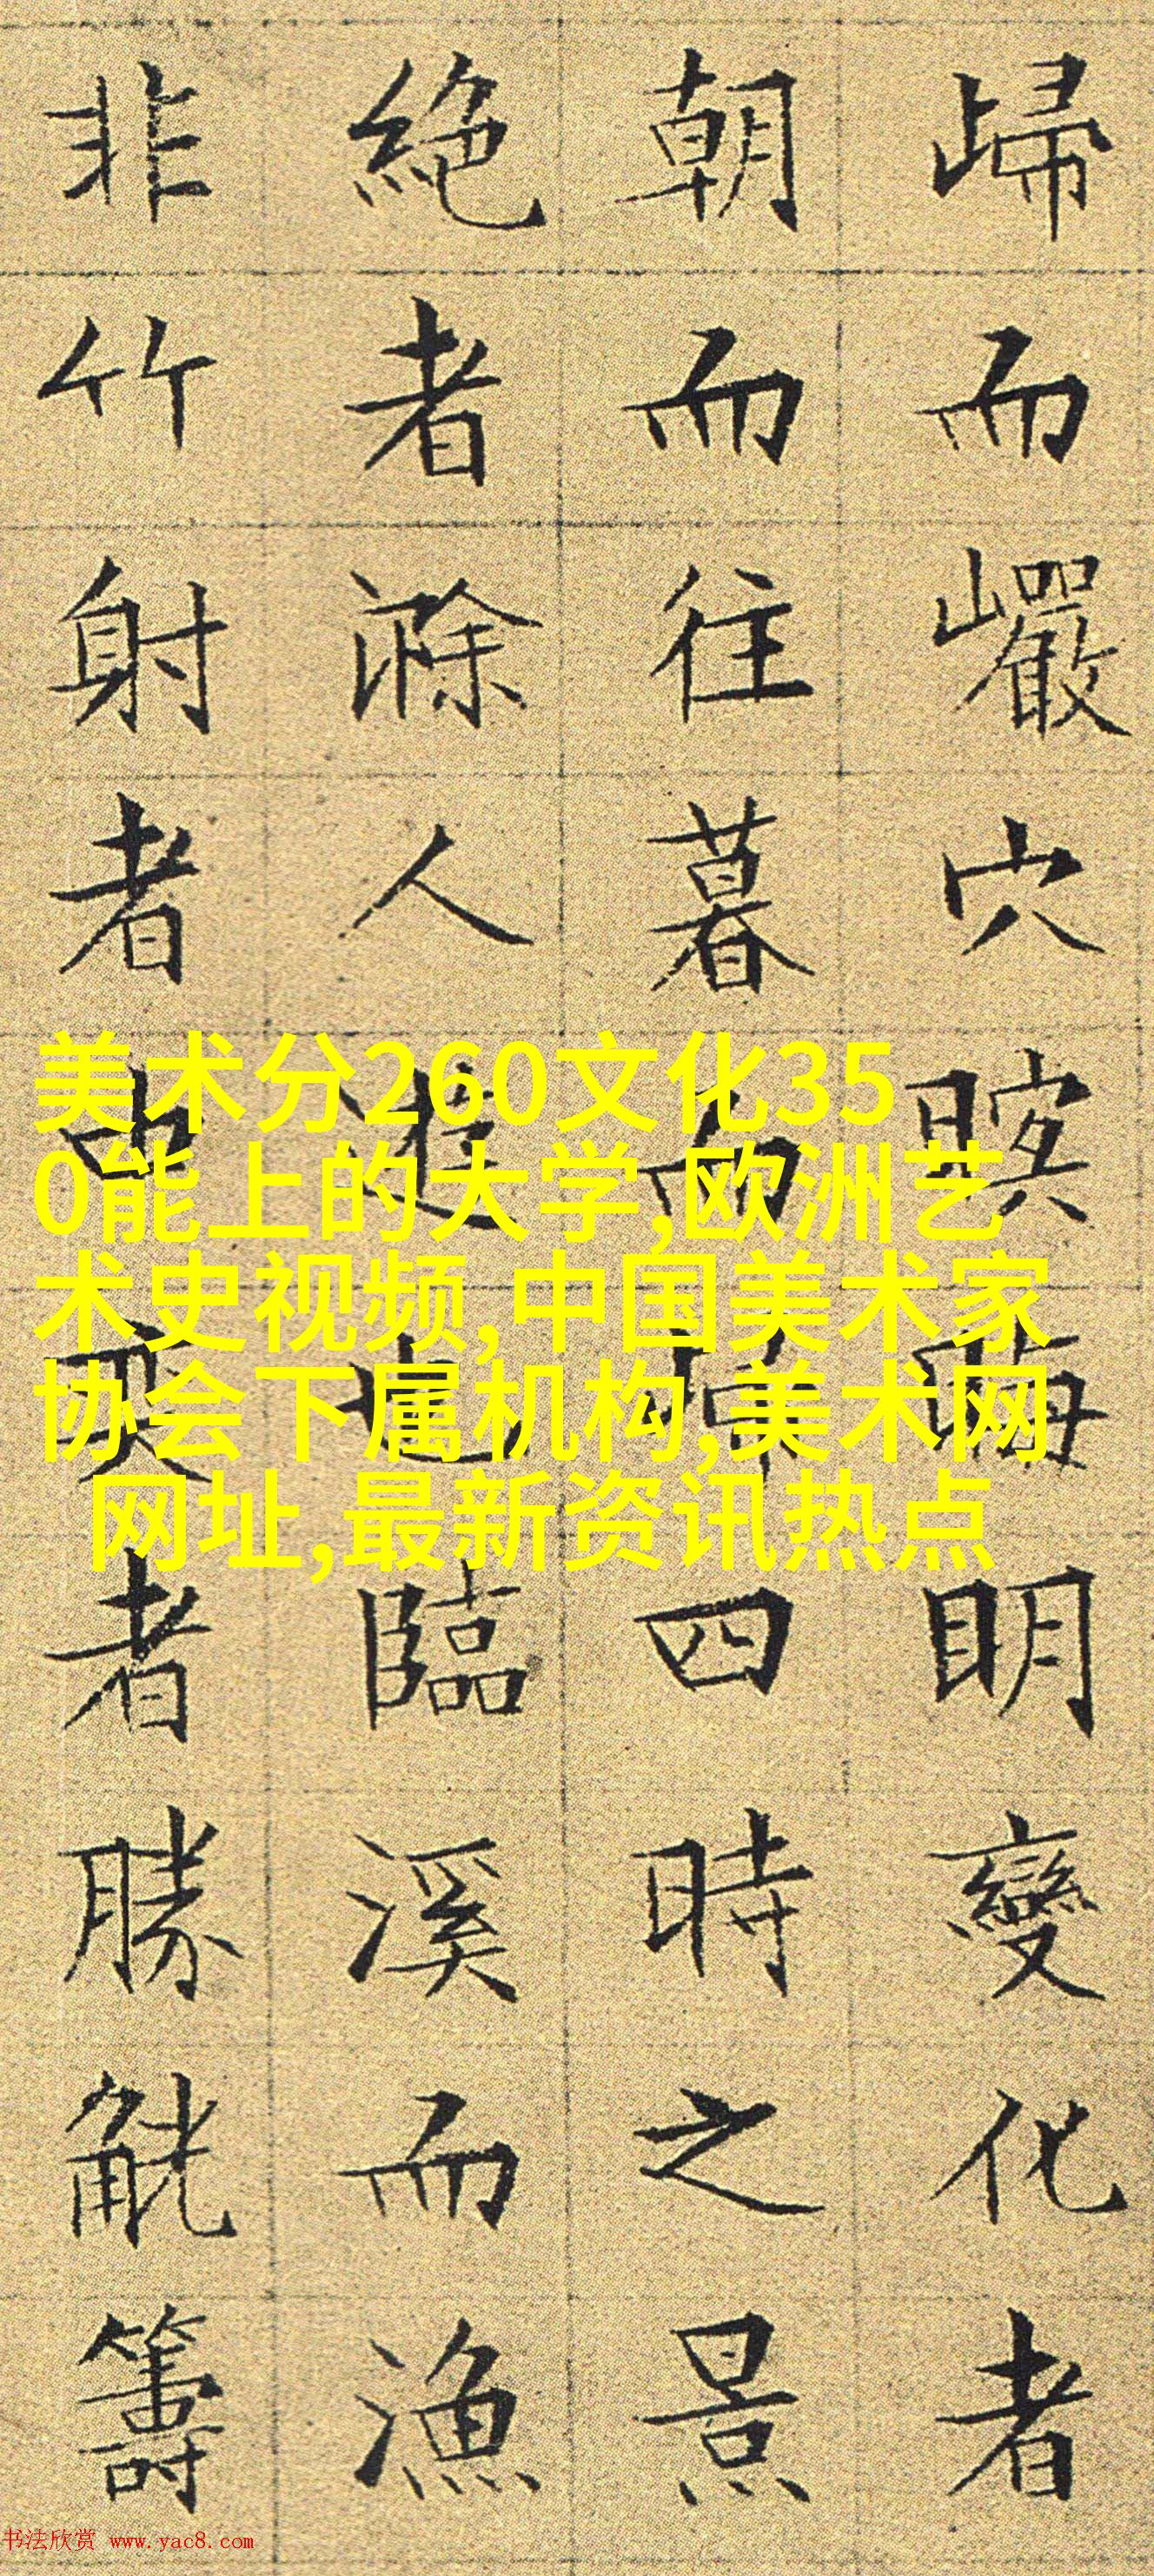 㱕而巗穴暝晦眀變化者
朝而往暮而㱕四時之景
絶者滁人遊也臨溪而漁
非竹射者中奕者勝觥籌
美术分260文化35
0能上的大学,欧洲艺
术史视频,中国美术家
协会下属机构,美术网
网址,最新资讯热点
书法欣赏 www.yac8.com